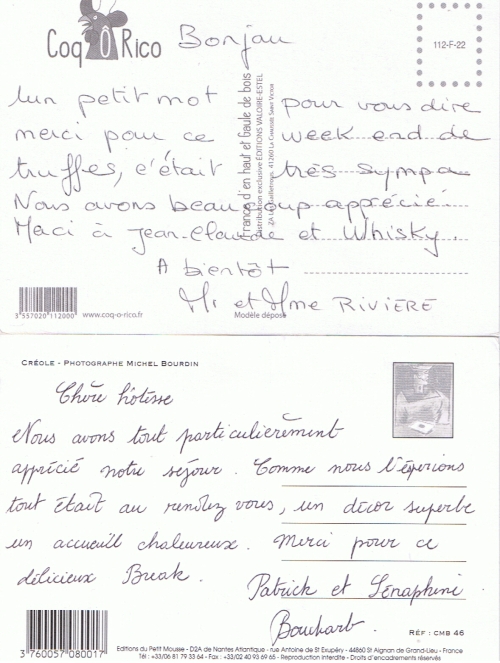 Coq Ô Rico
Bonjau
112-F-22
Un petit mot pour vous dire
merci pour ce week end de
truffes, c'était très sympa
Nous avons beaucoup apprécié
Merci à Jean-Claude et Whisky.
A bientôt
Mr et Mme RIVIERE
France d'en haut et Gaule de bois
Distribution exclusive ÉDITIONS VALOIRE-ESTEL
3 557020 112000
www.coq-o-rico.fr
Modèle déposé
CRÉOLE - PHOTOGRAPHE MICHEL BOURDIN
Chère hôtesse
Nous avons tout particulièrement
apprécié notre séjour. Comme nous l'éspérions
tout était au rendez vous, un décor superbe
un accueill chaleureux. Merci pour ce
délicieux Break.
Patrick et Séraphine
Bouchard.
3 760057 080017
RÉF : CMB 46
Editions du Petit Mousse - D2A de Nantes Atlantique - rue Antoine de St Exupéry - 44860 St Aignan de Grand-Lieu - France
Tél : +33/06 81 79 33 64 - Fax : +33/02 40 93 69 65 - Reproduction Interdite - Droits d'encadrements réservés